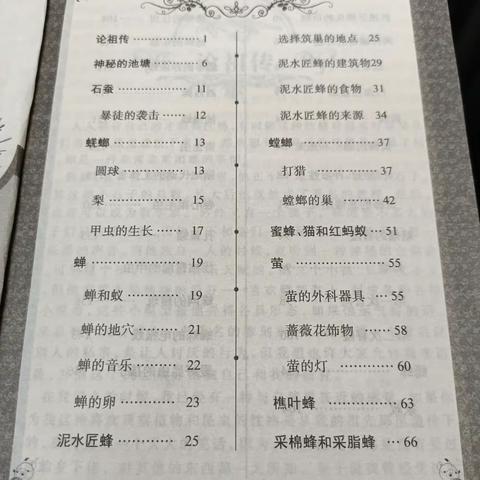 论祖传 ………… 1
神秘的池塘 ……… 6
石蚕 ………… 11
暴徒的袭击 …… 12
蜣螂 ………… 13
圆球 ………… 13
梨 ………… 15
甲虫的生长 …… 17
蝉 ………… 19
蝉和蚁 ……… 19
蝉的地穴 …… 21
蝉的音乐 …… 22
蝉的卵 …… 23
泥水匠蜂 ………… 25
选择筑巢的地点 25
泥水匠蜂的建筑物29
泥水匠蜂的食物 31
泥水匠蜂的来源 34
螳螂 ………… 37
打猎 ……… 37
螳螂的巢 …… 42
蜜蜂、猫和红蚂蚁 … 51
萤 ………… 55
萤的外科器具 … 55
蔷薇花饰物 …… 58
萤的灯 …… 60
樵叶蜂 ……… 63
采棉蜂和采脂蜂 … 66